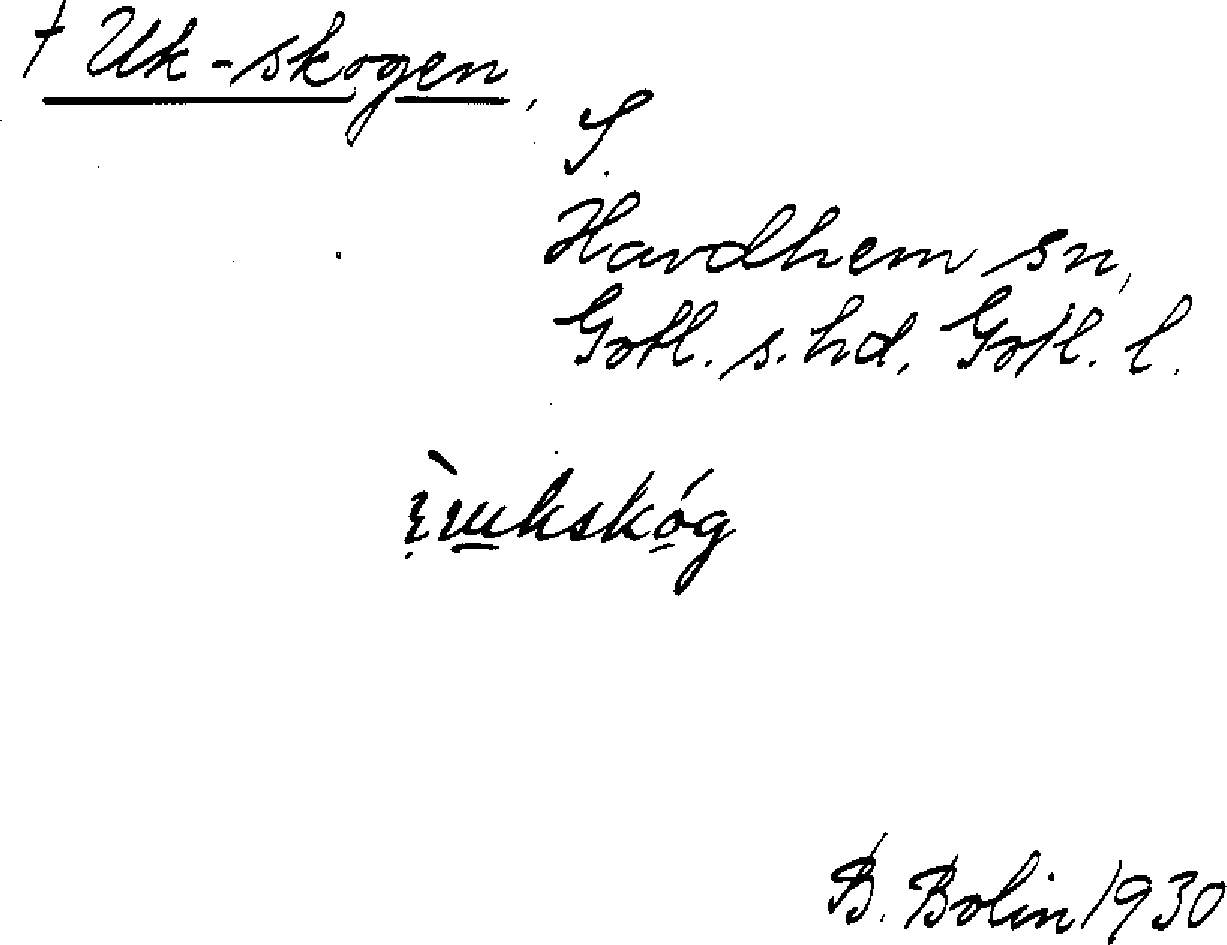 † Uk-skogen,
S.
Havdhem sn,
Gotl. s. hd, Gotl. l.
B. Bolin 1930